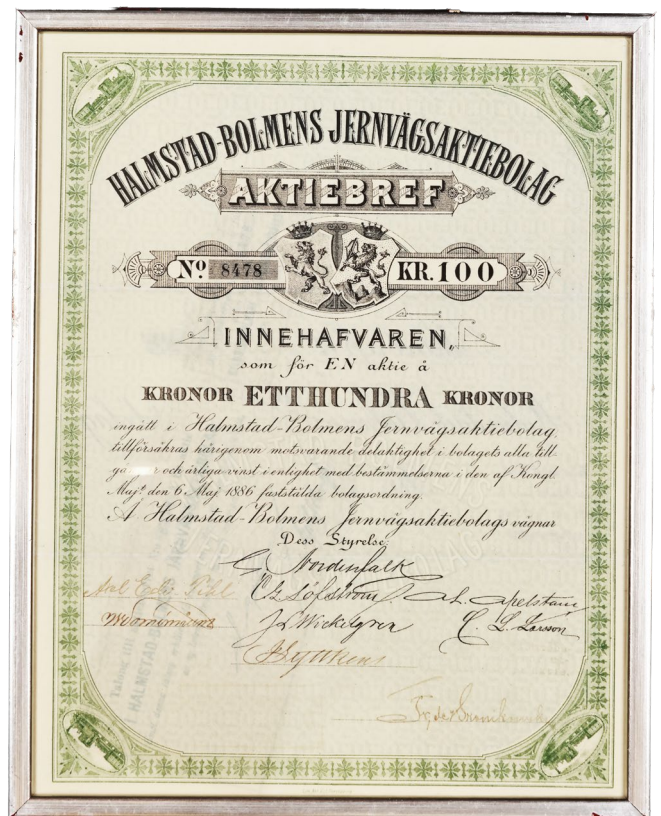 HALMSTAD-BOLMENS JERNVÄGSAKTIEBOLAG
AKTIEBREF
No 8478 KR. 100
INNEHAFVAREN,
som för EN aktie å
KRONOR ETTHUNDRA KRONOR
ingått i Halmstad-Bolmens Jernvägsaktiebolag,
tillförsäkras härigenom motsvarande delaktighet i bolagets alla till-
gå och årliga vinst i enlighet med bestämmelserna i den af Kongl.
Maj:t den 6 Maj 1886 fastställda bolagsordning.
Å Halmstad-Bolmens Jernvägsaktiebolags vägnar
Dess Styrelse:
Nordenfalk
Axel Pihl C. Z. Löfström
J. L. Wickelgren C. L. Larsson